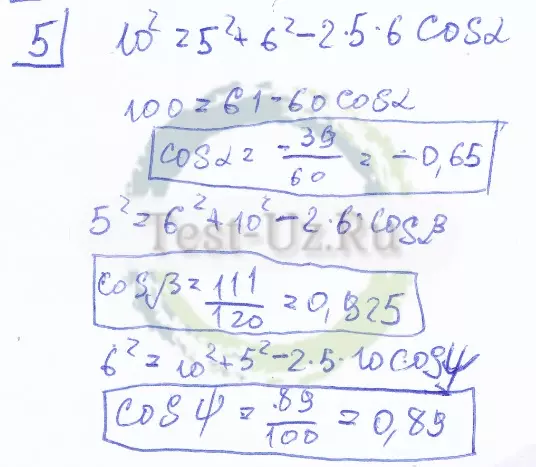 5 10² = 5² + 6² - 2·5·6 cosα
100 = 61 - 60 cosα
cosα = -39/60 = -0,65
5² = 6² + 10² - 2·6·cosβ
Test-Uz.Ru
cosβ = 111/120 = 0,925
6² = 10² + 5² - 2·5·10 cosψ
cosψ = 89/100 = 0,89